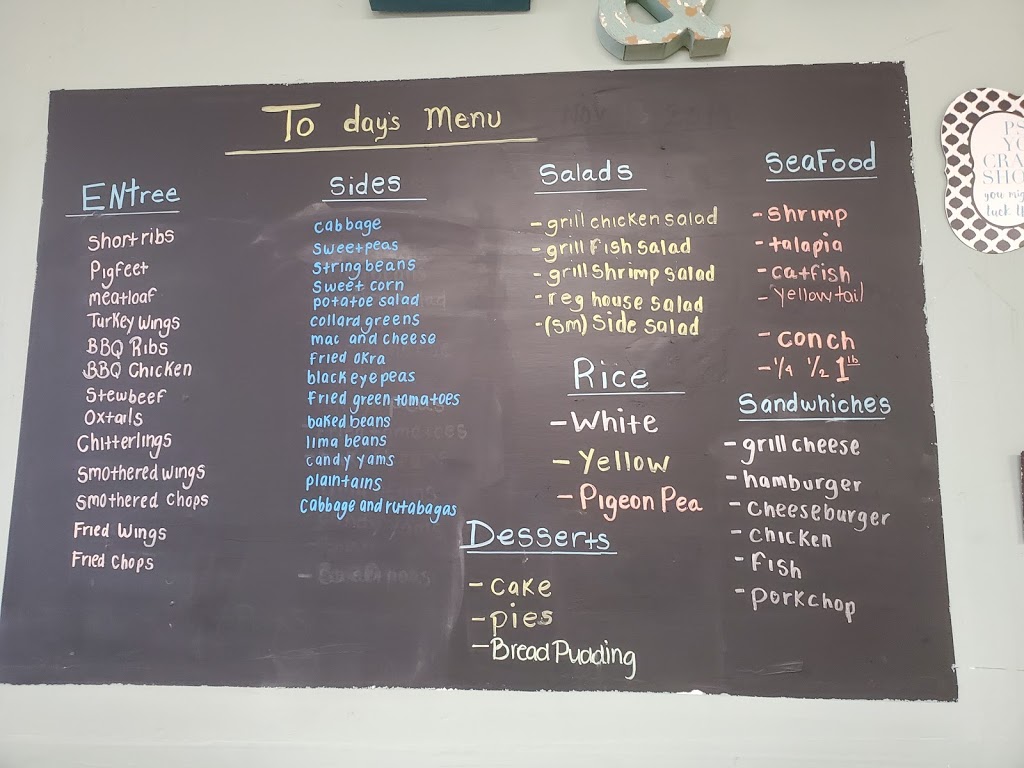 To day's Menu
ENtree
Short ribs
Pigfeet
meatloaf
Turkey Wings
BBQ Ribs
BBQ Chicken
Stewbeef
Oxtails
Chitterlings
Smothered wings
Smothered Chops
Fried Wings
Fried Chops
Sides
cabbage
sweet peas
string beans
sweet corn
potatoe salad
collard greens
mac and cheese
fried okra
black eye peas
fried green tomatoes
baked beans
lima beans
candy yams
plaintains
cabbage and rutabagas
Salads
- grill chicken salad
- grill fish salad
- grill shrimp salad
- reg house salad
- (sm) Side salad
Rice
- White
- Yellow
- Pigeon Pea
Desserts
- Cake
- pies
- Bread Pudding
SeaFood
- Shrimp
- talapia
- catfish
- yellow tail
- conch
- 1/4 1/2 1 lb
Sandwhiches
- grill cheese
- hamburger
- cheeseburger
- chicken
- Fish
- porkchop
&